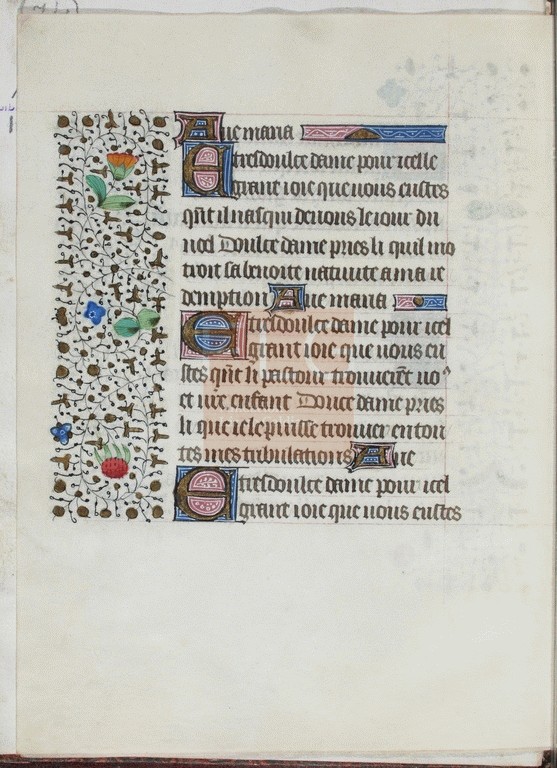 Aue maria
E tresdoulce dame pour icelle
grant ioie que uous eustes
qñt il nasqui de uous le iour du
noel Doulce dame pries li quil mo
troit sa benoite natiuite a ma re
demption Aue maria
E tresdoulce dame pour icel
grant ioie que uous eu
stes qñt li pastour trouuerẽt uoꝰ
et ur̃e enfant Douce dame pries
li que ie le puisse trouuer en tou
tes mes tribulations Aue
E tresdoulce dame pour icel
grant ioie que uous eustes